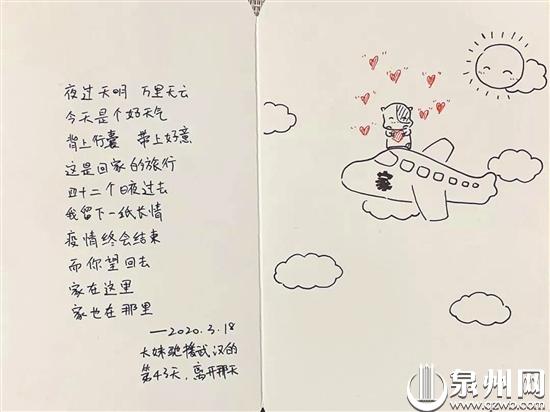 夜过天明 万里无云
今天是个好天气
背上行囊 带上好意
这是回家的旅行
四十二个日夜过去
我留下一纸长情
疫情终会结束
而你望回去
家在这里
家也在那里
——2020.3.18
大妹驰援武汉的
第43天，离开那天
家
泉州网
www.qzwb.com